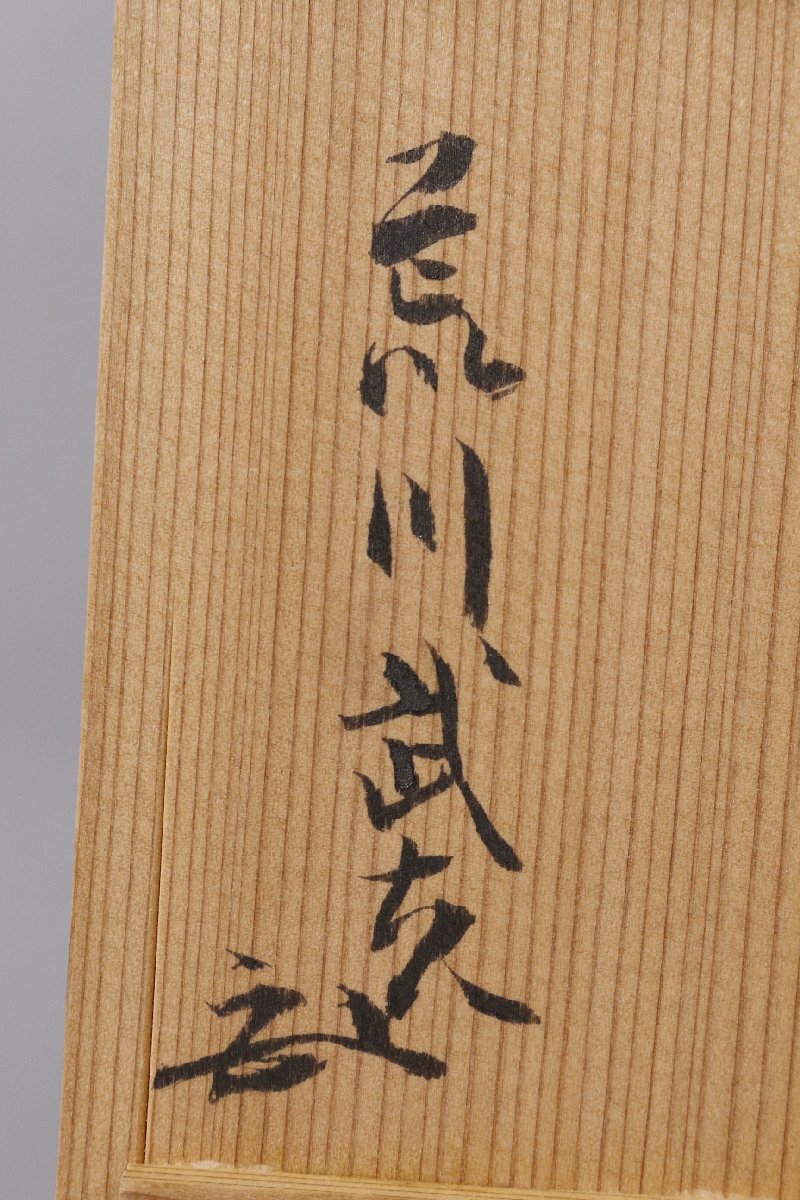 荒川武夫